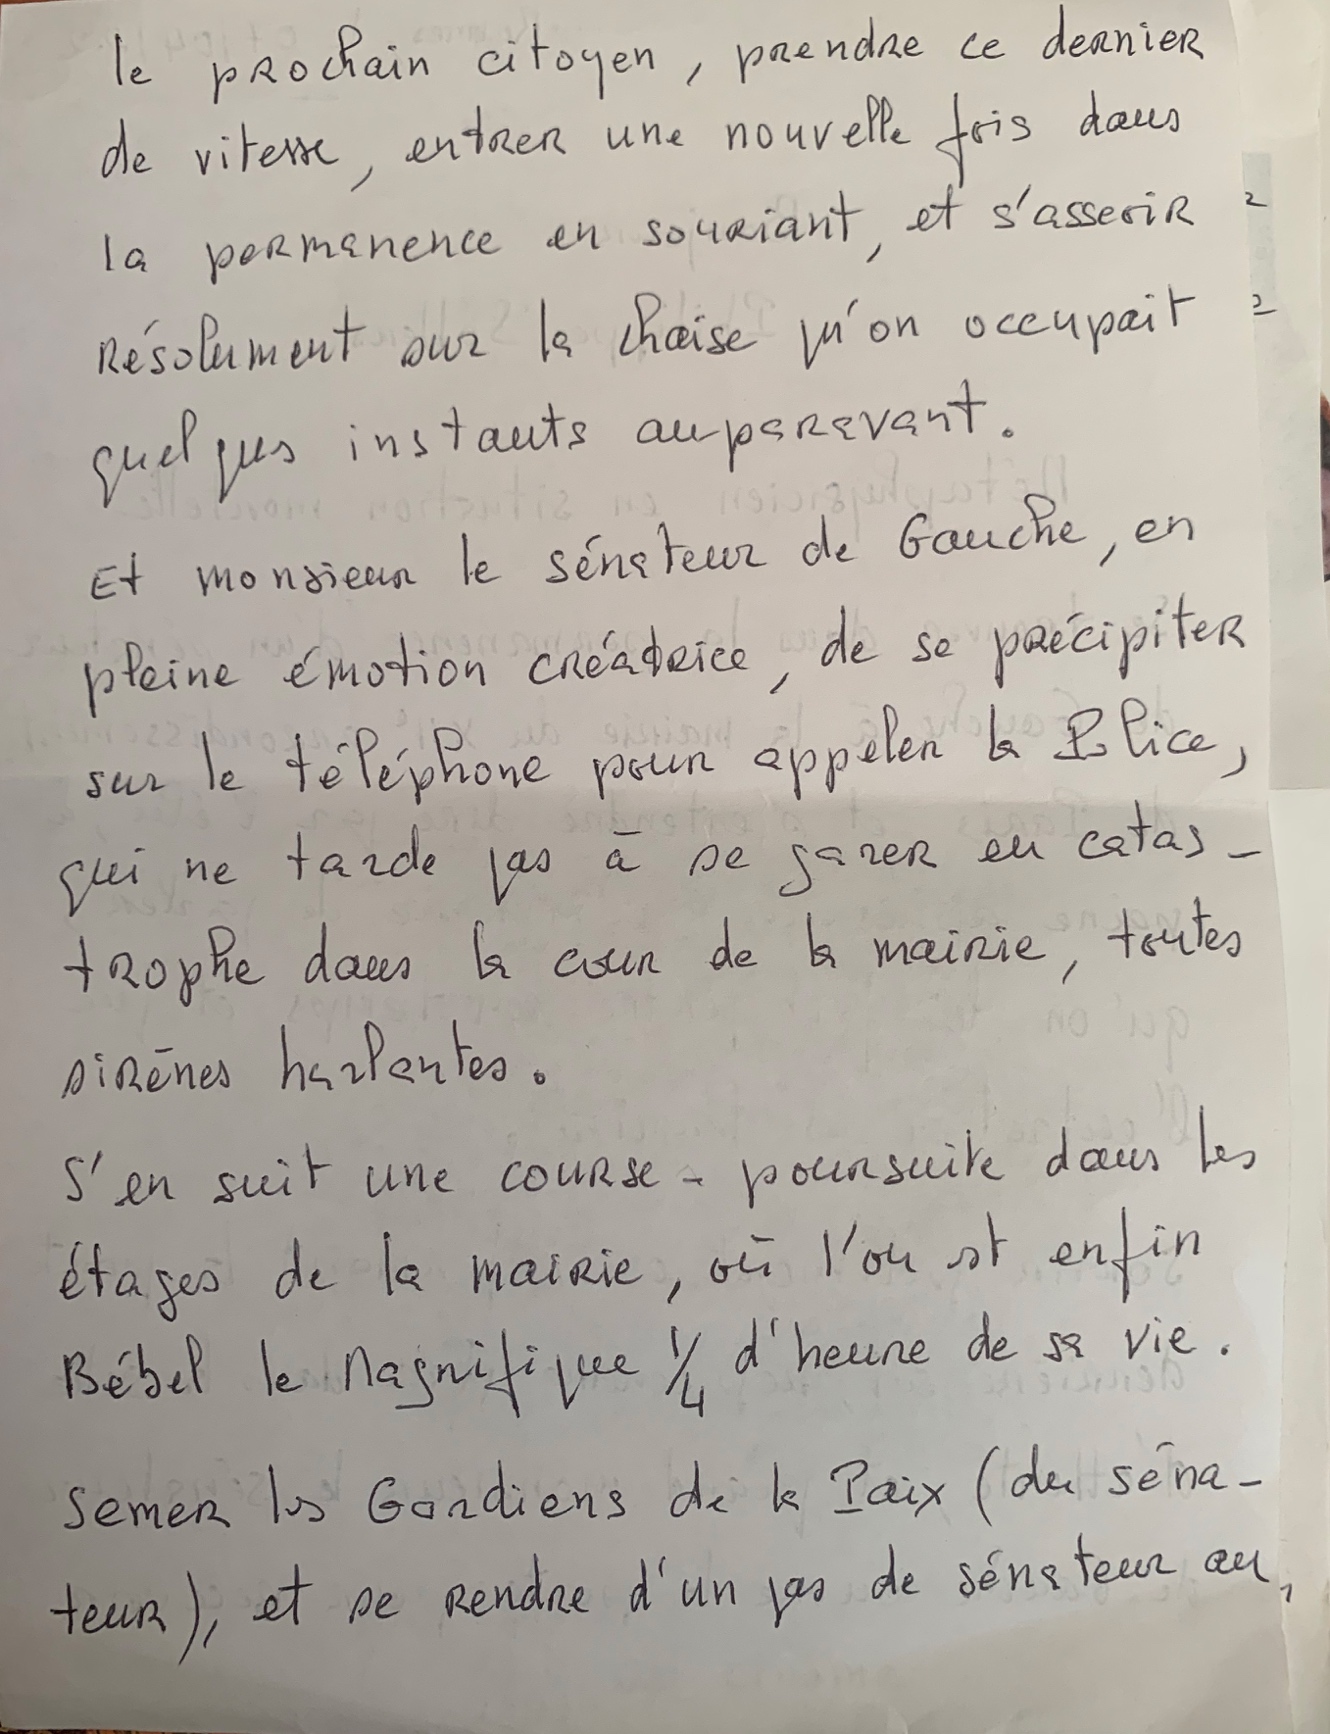 le prochain citoyen, prendre ce dernier
de vitesse, entrer une nouvelle fois dans
la permanence en souriant, et s'asseoir
résolument sur la chaise qu'on occupait
quelques instants auparavant.
Et monsieur le sénateur de Gauche, en
pleine émotion créatrice, de se précipiter
sur le téléphone pour appeler la Police,
qui ne tarde pas à se garer en catas-
trophe dans la cour de la mairie, toutes
sirènes hurlantes.
S'en suit une course-poursuite dans les
étages de la mairie, où l'on est enfin
Bébel le Magnifique 1/4 d'heure de sa vie.
Semer les Gardiens de la Paix (du séna-
teur), et se rendre d'un pas de sénateur au